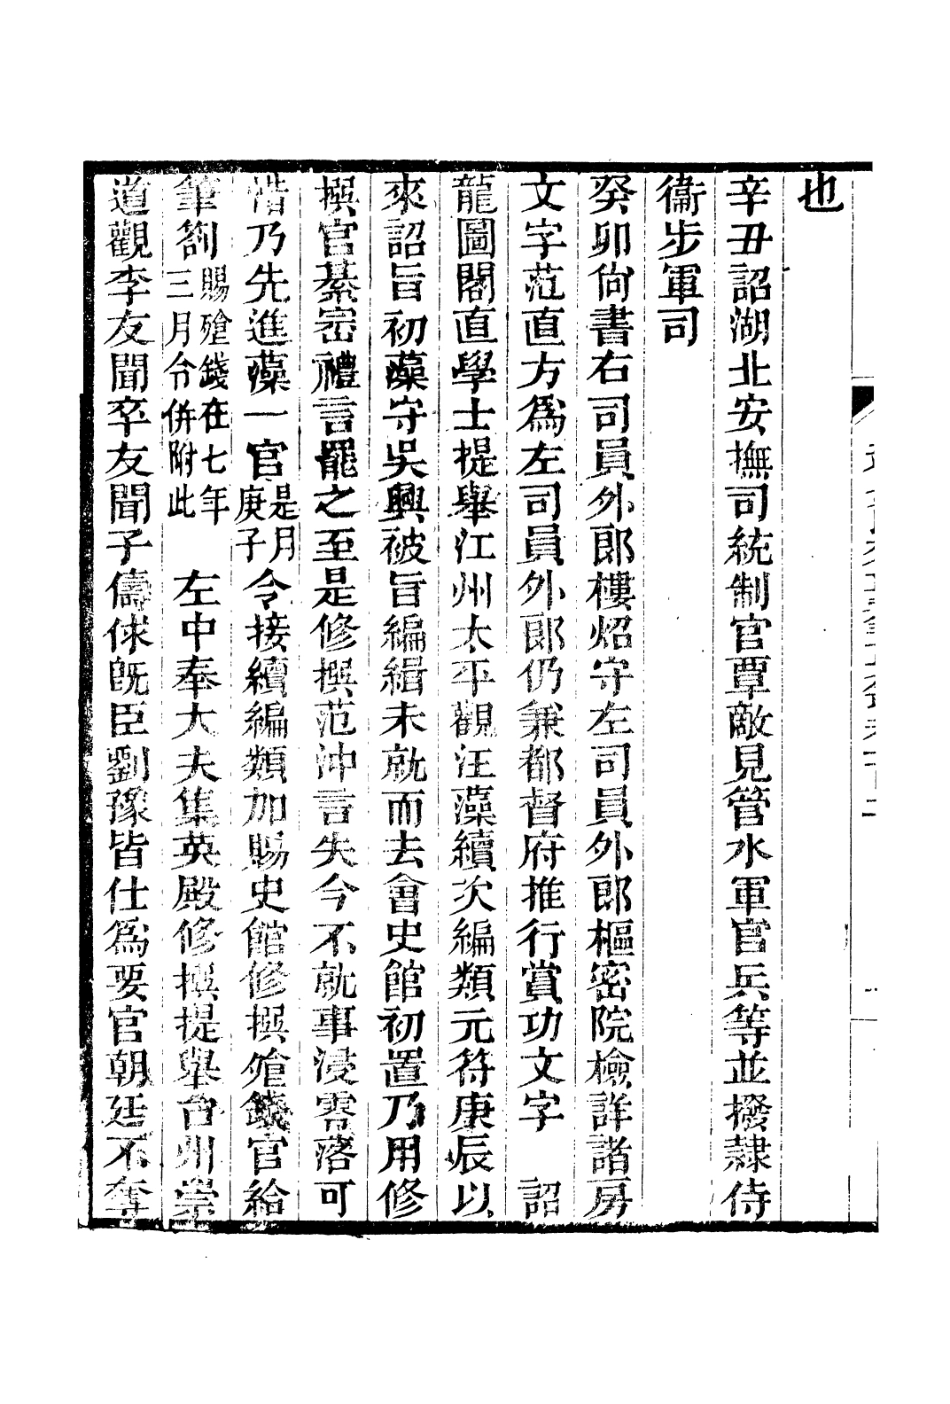 也
辛丑詔湖北安撫司統制官覃敵見管水軍官兵等並撥隸侍
衞步軍司
癸卯尙書右司員外郎樓炤守左司員外郎樞密院檢詳諸房
文字范直方爲左司員外郎仍兼都督府推行賞功文字　詔
龍圖閣直學士提舉江州太平觀汪藻續次編類元符庚辰以
來詔旨初藻守吳興被旨編緝未就而去會史館初置乃用修
撰官綦崈禮言罷之至是修撰范沖言失今不就事浸零落可
惜乃先進藻一官是月庚子令接續編類加賜史館修撰飧錢官給
筆劄賜飧錢在七年三月今併附此　左中奉大夫集英殿修撰提舉台州崇
道觀李友聞卒友聞子儔俅旣臣劉豫皆仕爲要官朝廷不奪